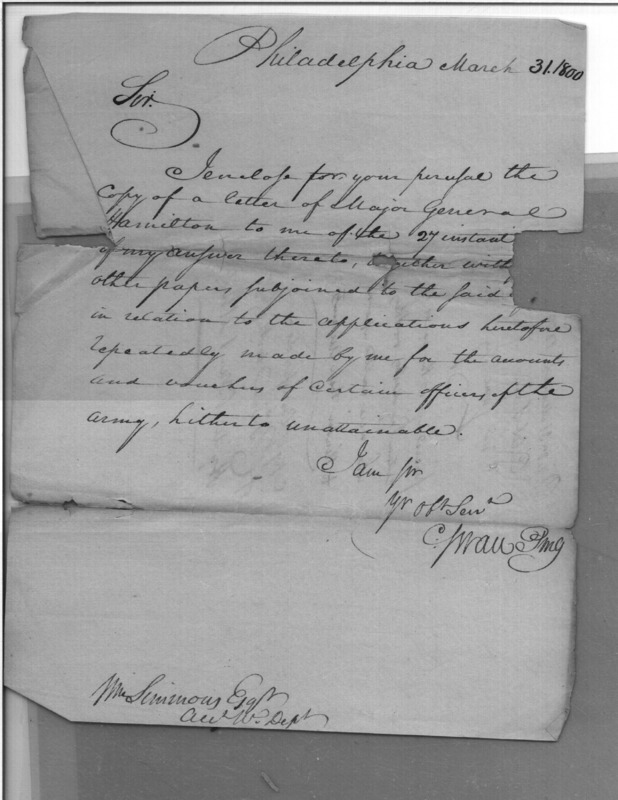 Philadelphia March 31. 1800
Sir.
I enclose for your perusal the
Copy of a letter of Major General
Hamilton to me of the 27 instant
of my answer thereto, together with
other papers subjoined to the said
in relation to the applications heretofore
repeatedly made by me for the accounts
and vouchers of certain officers of the
army, hitherto unattainable.
I am Sir
Yr Obt Servt
C. Swan PMG
Wm Simmons Esqr
Acct Wr Dept